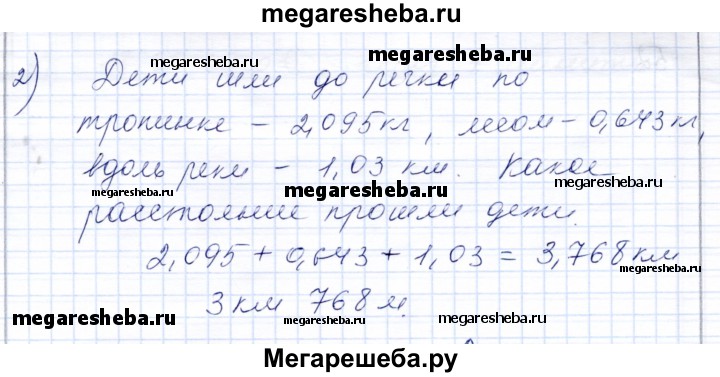 megaresheba.ru
megaresheba.ru megaresheba.ru
2) Дети шли до речки по
megaresheba.ru megaresheba.ru
тропинке – 2,095кг, лесом – 0,643 кг,
вдоль реки – 1,03 км. Какое
megaresheba.ru megaresheba.ru megaresheba.ru
расстояние прошли дети.
2,095 + 0,643 + 1,03 = 3,768 км
megaresheba.ru megaresheba.ru
3 км 768 м.
megaresheba.ru megaresheba.ru
Мегарешеба.ру